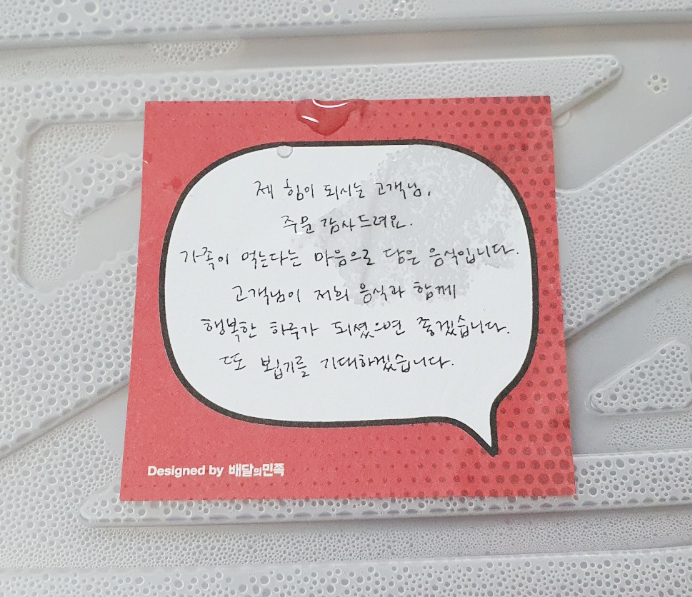 제 힘이 되시는 고객님,
주문 감사드려요.
가족이 먹는다는 마음으로 담은 음식입니다.
고객님이 저희 음식과 함께
행복한 하루가 되셨으면 좋겠습니다.
또 뵙기를 기대하겠습니다.
Designed by 배달의민족